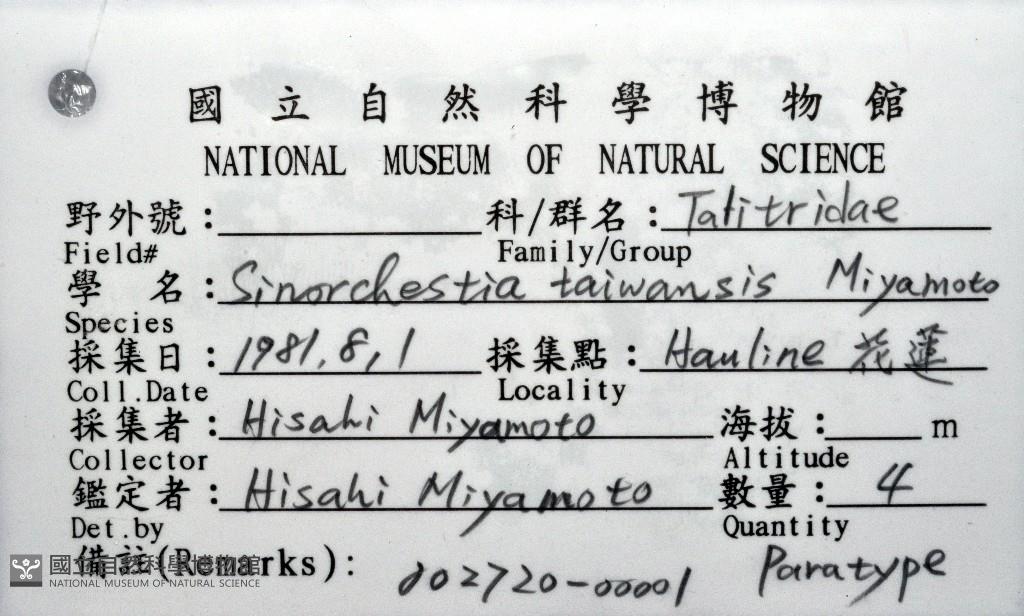 國立自然科學博物館
NATIONAL MUSEUM OF NATURAL SCIENCE
野外號: 科/群名: Talitridae
Field# Family/Group
學 名: Sinorchestia taiwansis Miyamoto
Species
採集日: 1981.8,1 採集點: Hauline 花蓮
Coll.Date Locality
採集者: Hisahi Miyamoto 海拔: m
Collector Altitude
鑑定者: Hisahi Miyamoto 數量: 4
Det.by Quantity
備註(Remarks): 002720-00001 Paratype
國立自然科學博物館
NATIONAL MUSEUM OF NATURAL SCIENCE